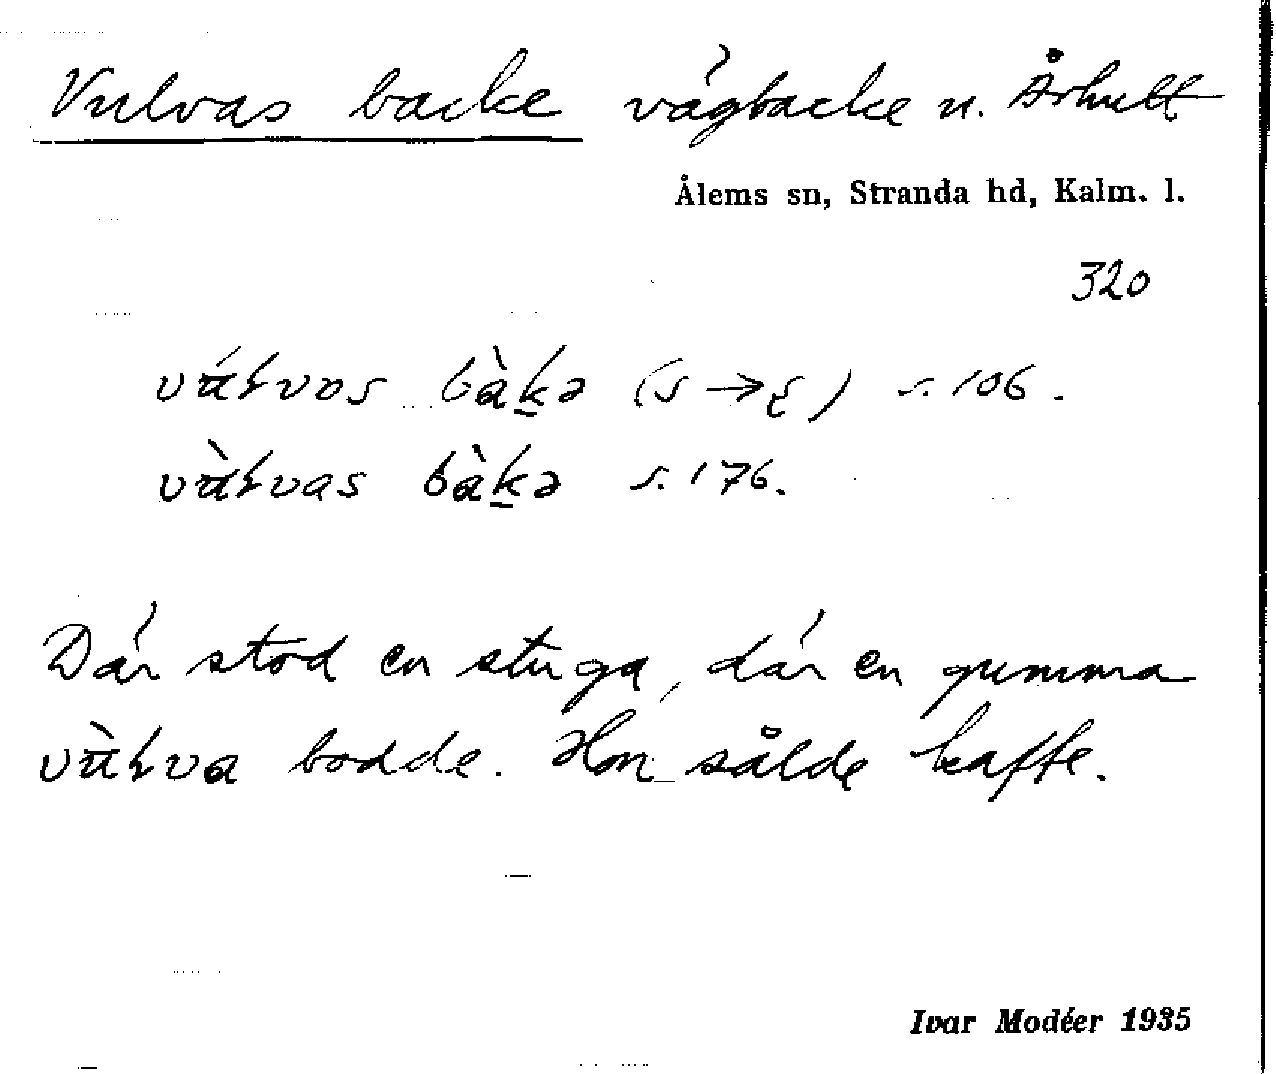 Vulvas backe vägbacke n. Århult
Ålems sn, Stranda hd, Kalm. l.
320
vúɫvos bàk̠ə (s → ʂ) s. 106.
vùɫvas bàk̠ə s. 176.
Där stod en stuga, där en gumma
vùɫva bodde. Hon sålde kaffe.
Ivar Modéer 1935